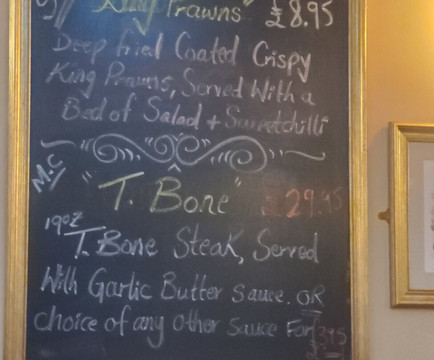 King Prawns" £8.95
Deep fried Coated Crispy
King Prawns, Served With a
Bed of Salad + Sweetchilli
M.C
"T. Bone" £29.95
19oz
T. Bone Steak, Served
With Garlic Butter Sauce. OR
choice of any other sauce For £3.95